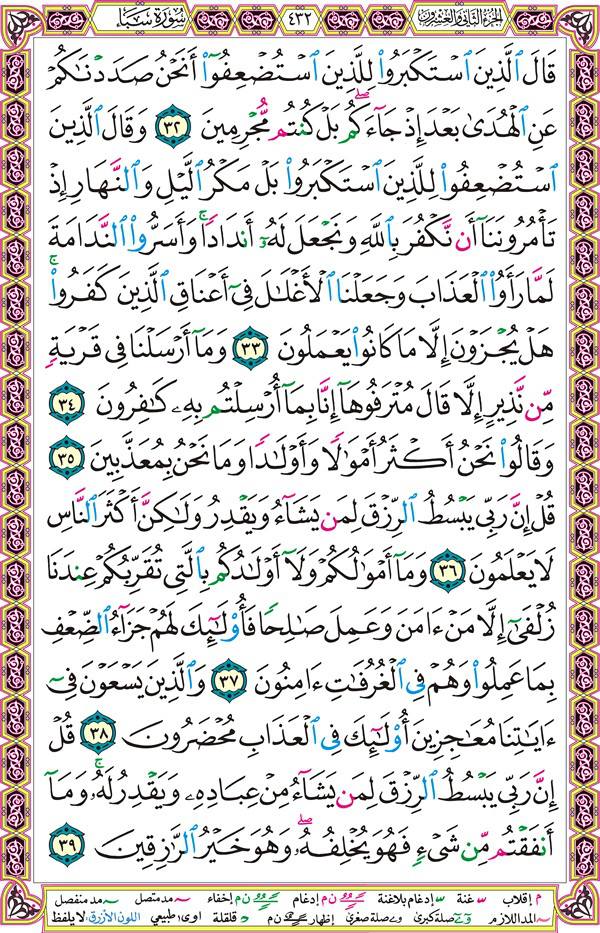 الجزء الثاني والعشرون ٤٣٢ سورة سبأ
قَالَ ٱلَّذِينَ ٱسۡتَكۡبَرُواْ لِلَّذِينَ ٱسۡتُضۡعِفُوٓاْ أَنَحۡنُ صَدَدۡنَٰكُمۡ
عَنِ ٱلۡهُدَىٰ بَعۡدَ إِذۡ جَآءَكُمۖ بَلۡ كُنتُم مُّجۡرِمِينَ ٣٢ وَقَالَ ٱلَّذِينَ
ٱسۡتُضۡعِفُواْ لِلَّذِينَ ٱسۡتَكۡبَرُواْ بَلۡ مَكۡرُ ٱلَّيۡلِ وَٱلنَّهَارِ إِذۡ
تَأۡمُرُونَنَآ أَن نَّكۡفُرَ بِٱللَّهِ وَنَجۡعَلَ لَهُۥٓ أَندَادٗاۚ وَأَسَرُّواْ ٱلنَّدَامَةَ
لَمَّا رَأَوُاْ ٱلۡعَذَابَۚ وَجَعَلۡنَا ٱلۡأَغۡلَٰلَ فِيٓ أَعۡنَاقِ ٱلَّذِينَ كَفَرُواْۚ
هَلۡ يُجۡزَوۡنَ إِلَّا مَا كَانُواْ يَعۡمَلُونَ ٣٣ وَمَآ أَرۡسَلۡنَا فِي قَرۡيَةٖ
مِّن نَّذِيرٍ إِلَّا قَالَ مُتۡرَفُوهَآ إِنَّا بِمَآ أُرۡسِلۡتُم بِهِۦ كَٰفِرُونَ ٣٤
وَقَالُواْ نَحۡنُ أَكۡثَرُ أَمۡوَٰلٗا وَأَوۡلَٰدٗا وَمَا نَحۡنُ بِمُعَذَّبِينَ ٣٥
قُلۡ إِنَّ رَبِّي يَبۡسُطُ ٱلرِّزۡقَ لِمَن يَشَآءُ وَيَقۡدِرُ وَلَٰكِنَّ أَكۡثَرَ ٱلنَّاسِ
لَا يَعۡلَمُونَ ٣٦ وَمَآ أَمۡوَٰلُكُمۡ وَلَآ أَوۡلَٰدُكُم بِٱلَّتِي تُقَرِّبُكُمۡ عِندَنَا
زُلۡفَىٰٓ إِلَّا مَنۡ ءَامَنَ وَعَمِلَ صَٰلِحٗا فَأُوْلَٰٓئِكَ لَهُمۡ جَزَآءُ ٱلضِّعۡفِ
بِمَا عَمِلُواْ وَهُمۡ فِي ٱلۡغُرُفَٰتِ ءَامِنُونَ ٣٧ وَٱلَّذِينَ يَسۡعَوۡنَ فِيٓ
ءَايَٰتِنَا مُعَٰجِزِينَ أُوْلَٰٓئِكَ فِي ٱلۡعَذَابِ مُحۡضَرُونَ ٣٨ قُلۡ
إِنَّ رَبِّي يَبۡسُطُ ٱلرِّزۡقَ لِمَن يَشَآءُ مِنۡ عِبَادِهِۦ وَيَقۡدِرُ لَهُۥۚ وَمَآ
أَنفَقۡتُم مِّن شَيۡءٖ فَهُوَ يُخۡلِفُهُۥۖ وَهُوَ خَيۡرُ ٱلرَّٰزِقِينَ ٣٩
م إقلاب غنة إدغام بلاغنة ن م إدغام ن م إخفاء مد متصل مد منفصل
المد اللازم صلة كبرى صلة صغرى إظهار ن م قلقلة اوى طبيعي اللون الأزرق لا يلفظ